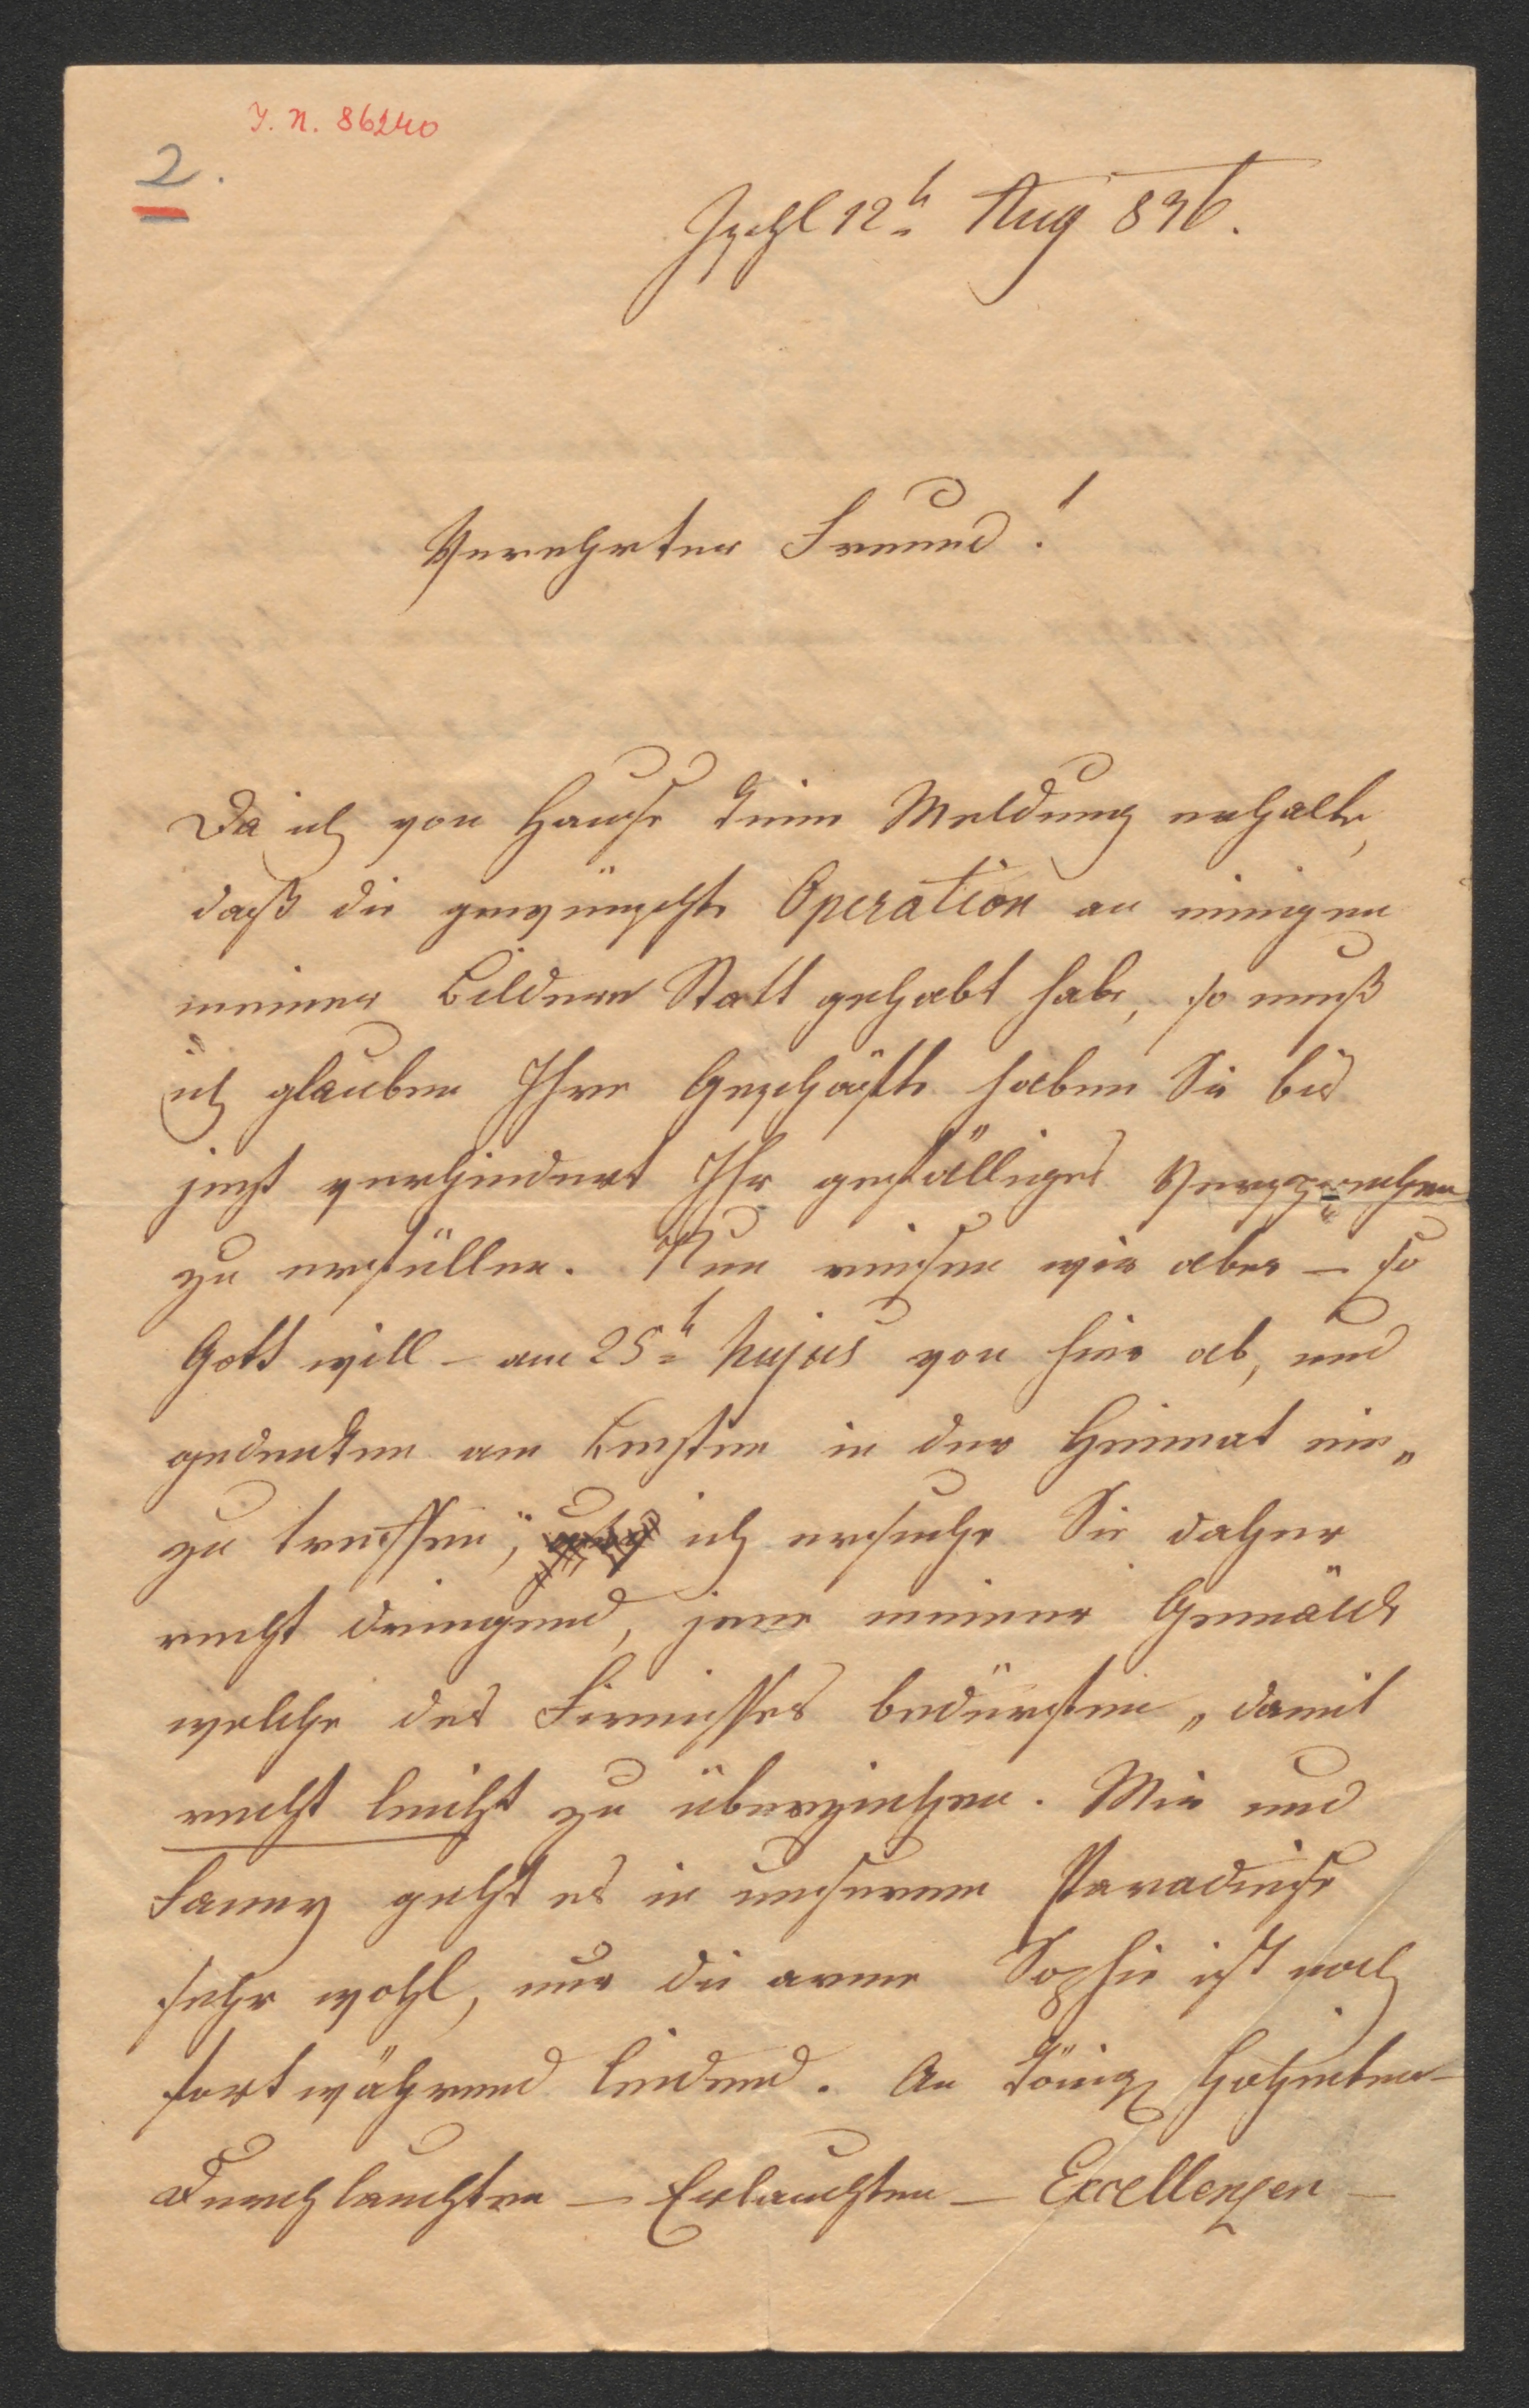 I. N. 86240
2.
Ischl 12t Aug 836.
Verehrter Freund!
Da ich von Hause keine Meldung erhalte,
daß die gewünschte Operation an einigen
meiner Bildern Statt gehabt habe, so muß
ich glauben Ihre Geschäfte haben Sie bis
jetzt verhindert Ihr gefälliges Versprechen
zu erfüllen. Nun reisen wir aber – so
Gott will – am 25t hujus von hier ab, und
gedenken am in der Heimat ein„
zu treffen; ich ersuche Sie daher
recht dringend, jene meiner Gemälde
welche des Firnisses bedürfen, damit
recht leicht zu überziehen. Mir und
Fanny geht es in unserem Paradiese
sehr wohl, nur die arme Sophie ist noch
fortwährend leidend. An König Hoheiten –
Durchlauchten – Erlauchten – Excellenzen –